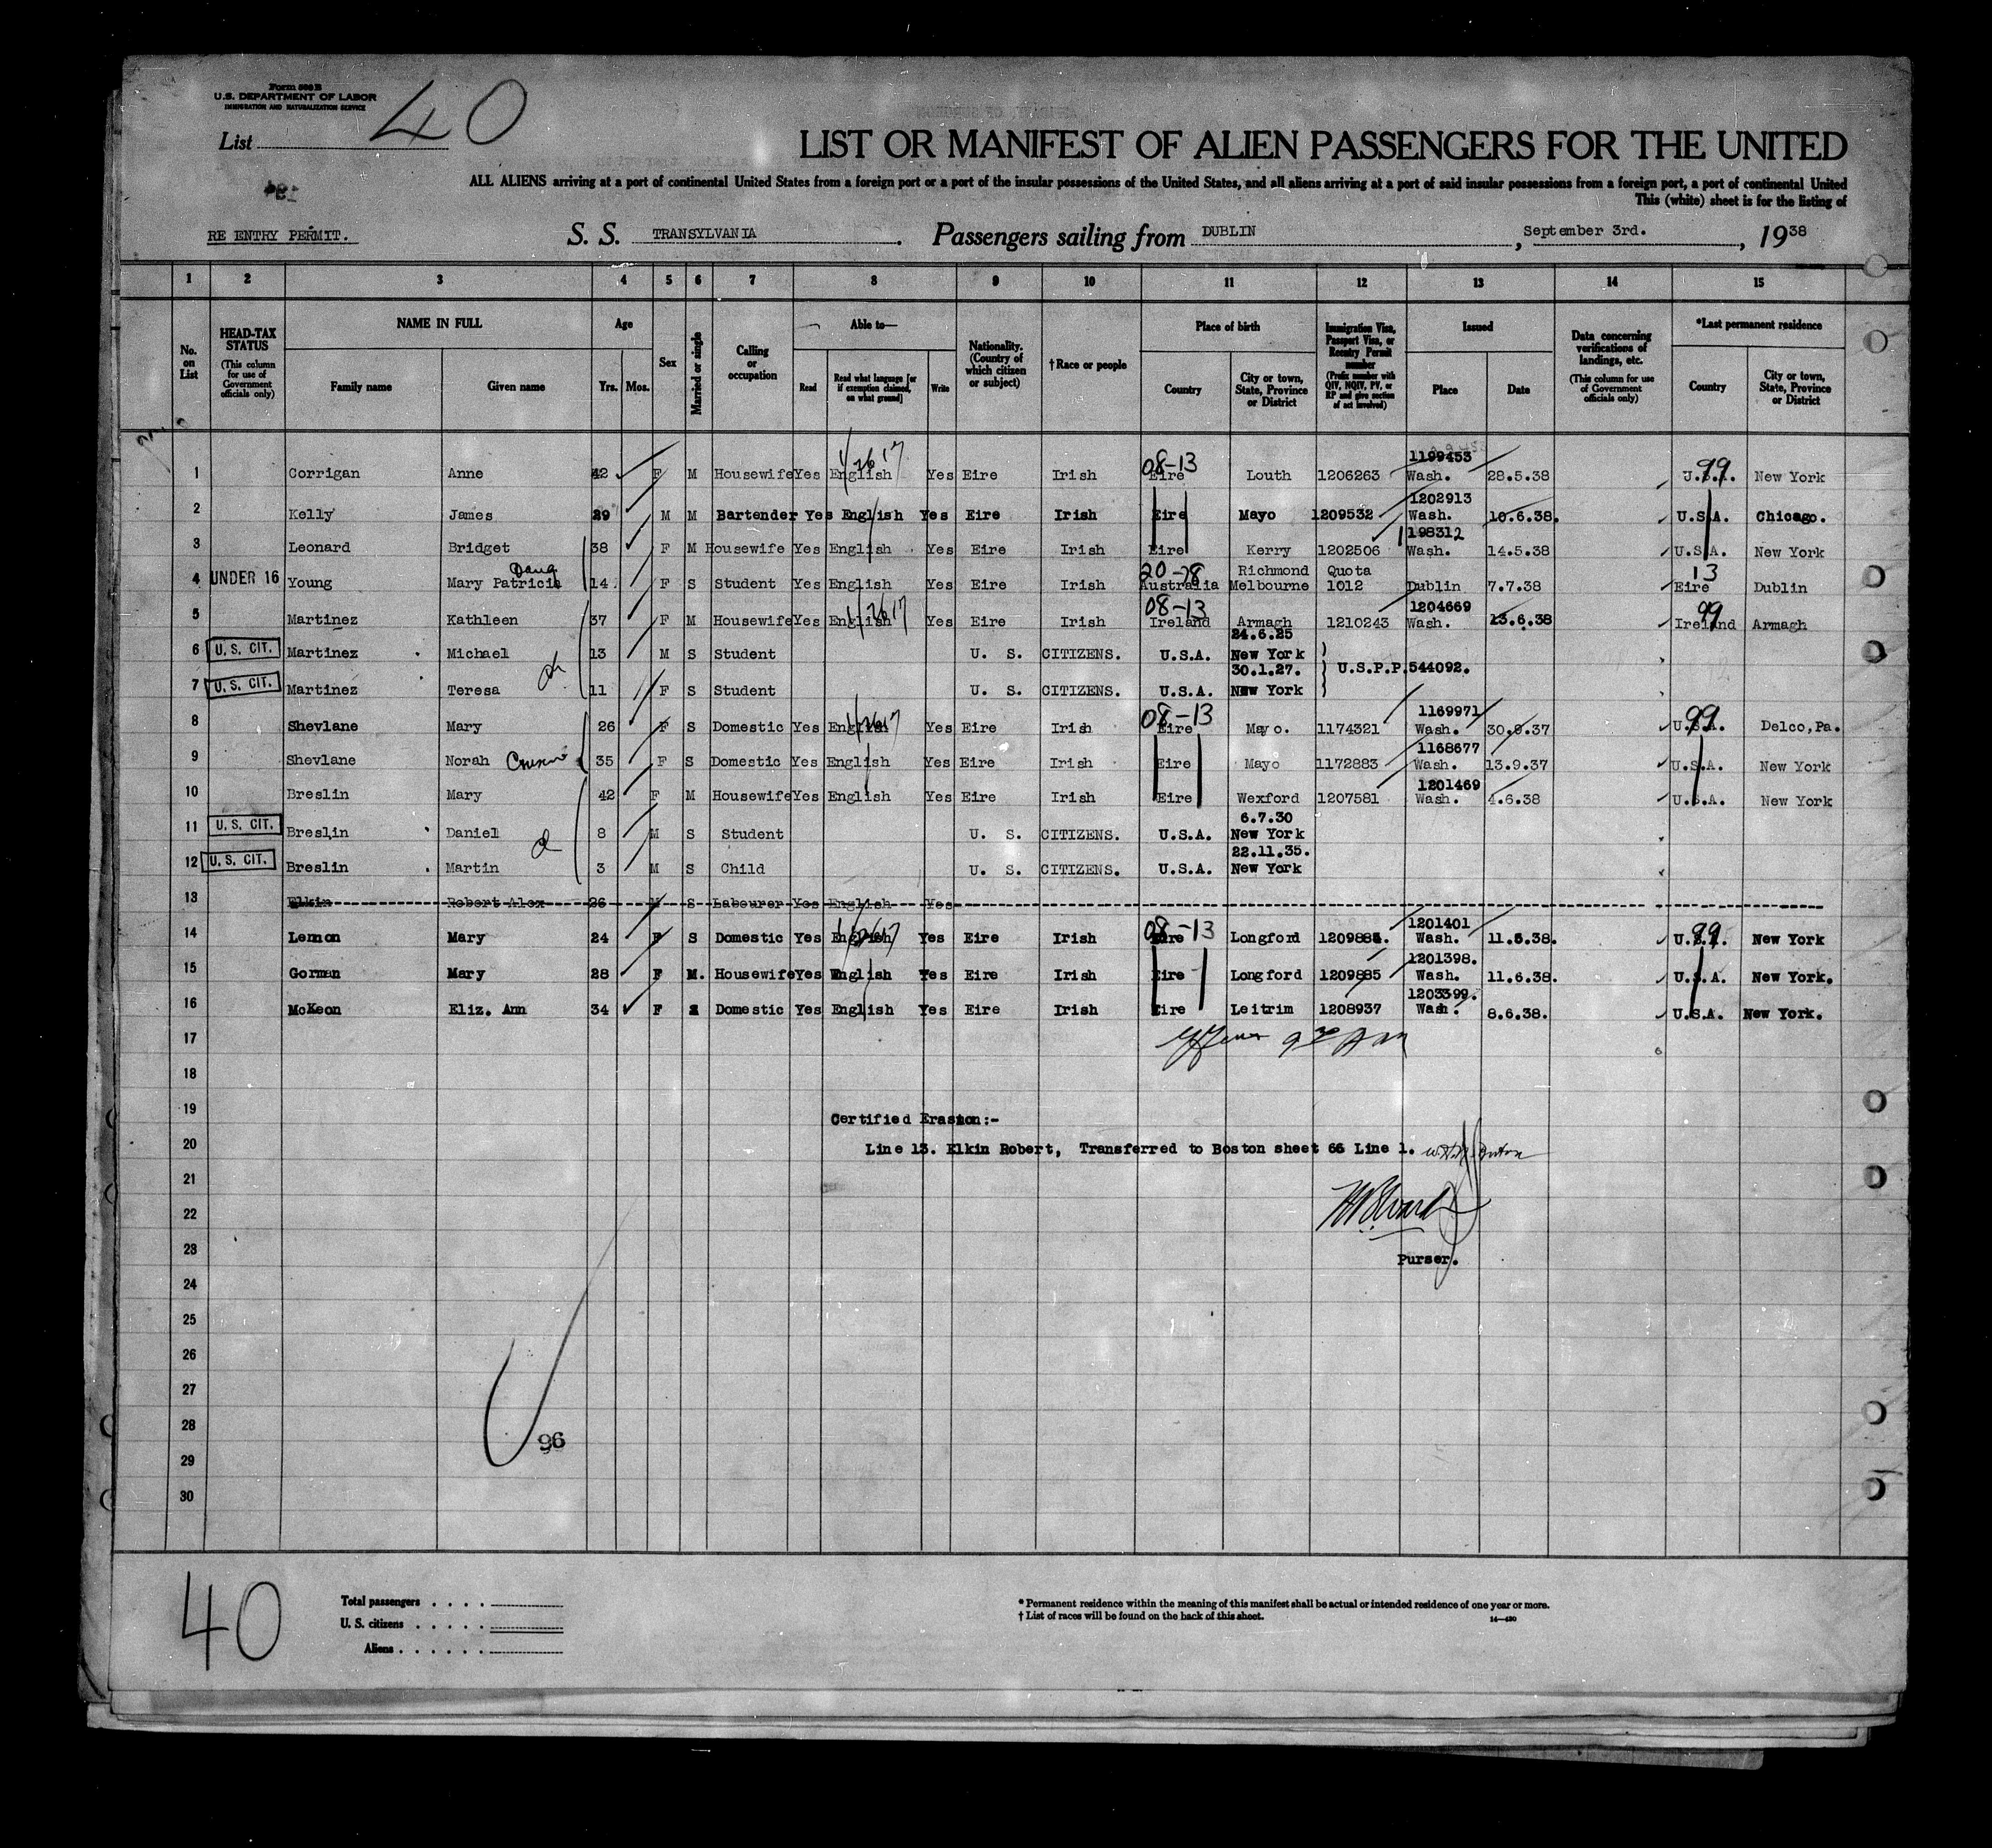 Form 500 B
U.S. DEPARTMENT OF LABOR
IMMIGRATION AND NATURALIZATION SERVICE
List 40
LIST OR MANIFEST OF ALIEN PASSENGERS FOR THE UNITED
ALL ALIENS arriving at a port of continental United States from a foreign port or a port of the insular possessions of the United States, and all aliens arriving at a port of said insular possessions from a foreign port, a port of continental United
This (white) sheet is for the listing of
RE ENTRY PERMIT. S. S. TRANSYLVANIA. Passengers sailing from DUBLIN, September 3rd., 1938
1 2 3 4 5 6 7 8 9 10 11 12 13 14 15
No. on List
HEAD-TAX STATUS (This column for use of Government officials only)
NAME IN FULL Family name Given name
Age Yrs. Mos.
Sex
Married or single
Calling or occupation
Able to— Read Read what language [or if exemption claimed, on what ground] Write
Nationality. (Country of which citizen or subject)
†Race or people
Place of birth Country City or town, State, Province or District
Immigration Visa, Passport Visa, or Reentry Permit number (Prefix number with QIV, NQIV, PV, or RP and give section of act involved)
Issued Place Date
Data concerning verifications of landings, etc. (This column for use of Government officials only)
*Last permanent residence Country City or town, State, Province or District
08-13 1199453 99
1 Corrigan Anne 42 F M Housewife Yes English Yes Eire Irish Eire Louth 1206263 Wash. 28.5.38 U.S.A. New York
1202913
2 Kelly James 29 M M Bartender Yes English Yes Eire Irish Eire Mayo 1209532 Wash. 10.6.38. U.S.A. Chicago.
1198312
3 Leonard Bridget 38 F M Housewife Yes English Yes Eire Irish Eire Kerry 1202506 Wash. 14.5.38 U.S.A. New York
20-78 Richmond Quota 13
4 UNDER 16 Young Mary Patricia 14 F S Student Yes English Yes Eire Irish Australia Melbourne 1012 Dublin 7.7.38 Eire Dublin
08-13 1204669 99
5 Martinez Kathleen 37 F M Housewife Yes English Yes Eire Irish Ireland Armagh 1210243 Wash. 13.6.38 Ireland Armagh
24.6.25
6 U. S. CIT. Martinez Michael 13 M S Student U. S. CITIZENS. U.S.A. New York
30.1.27. U.S.P.P.544092.
7 U. S. CIT. Martinez Teresa 11 F S Student U. S. CITIZENS. U.S.A. New York
08-13 1169971 99
8 Shevlane Mary 26 F S Domestic Yes English Yes Eire Irish Eire Mayo. 1174321 Wash. 30.9.37 U.S.A. Delco,Pa.
1168677
9 Shevlane Norah 35 F S Domestic Yes English Yes Eire Irish Eire Mayo 1172883 Wash. 13.9.37 U.S.A. New York
1201469
10 Breslin Mary 42 F M Housewife Yes English Yes Eire Irish Eire Wexford 1207581 Wash. 4.6.38 U.S.A. New York
6.7.30
11 U. S. CIT. Breslin Daniel 8 M S Student U. S. CITIZENS. U.S.A. New York
22.11.35.
12 U. S. CIT. Breslin Martin 3 M S Child U. S. CITIZENS. U.S.A. New York
13 Elkin Robert Alex 26 M S Labourer Yes English Yes
08-13 1201401 99
14 Lemon Mary 24 F S Domestic Yes English Yes Eire Irish Eire Longford 1209884. Wash. 11.6.38. U.S.A. New York
1201398.
15 Gorman Mary 28 F M. Housewife Yes English Yes Eire Irish Eire Longford 1209885 Wash. 11.6.38. U.S.A. New York.
1203399.
16 McKeon Eliz. Ann 34 F S Domestic Yes English Yes Eire Irish Eire Leitrim 1208937 Wash. 8.6.38. U.S.A. New York.
17
18
19 Certified Erasion:-
20 Line 13. Elkin Robert, Transferred to Boston sheet 66 Line 1.
21
22
23 Purser.
24
25
26
27
28
96
29
30
40
Total passengers . . . .
U. S. citizens . . . . .
Aliens . . . . . .
* Permanent residence within the meaning of this manifest shall be actual or intended residence of one year or more.
† List of races will be found on the back of this sheet. 14—430